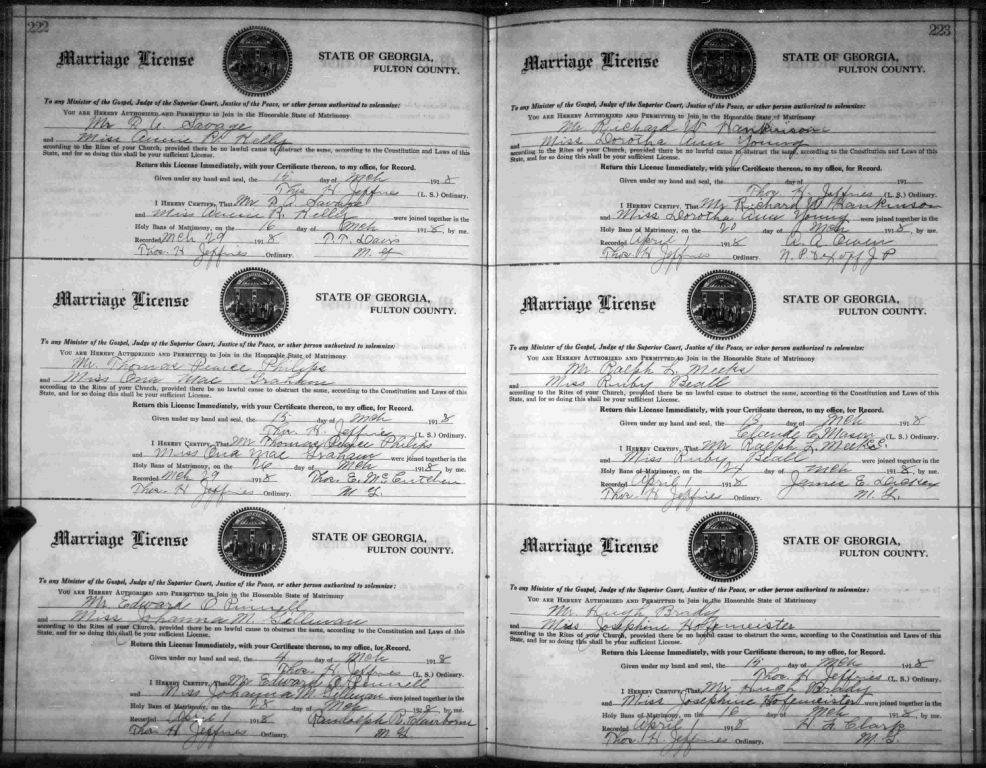 222
Marriage License
STATE OF GEORGIA,
FULTON COUNTY.
To any Minister of the Gospel, Judge of the Superior Court, Justice of the Peace, or other person authorized to solemnize:
YOU ARE HEREBY AUTHORIZED AND PERMITTED to Join in the Honorable State of Matrimony
Mr P. A. Savage
and Miss Annie R. Kelly
according to the Rites of your Church, provided there be no lawful cause to obstruct the same, according to the Constitution and Laws of this
State, and for so doing this shall be your sufficient License.
Return this License Immediately, with your Certificate thereon, to my office, for Record.
Given under my hand and seal, the 15 day of Mch 1918
Thos H Jeffries (L. S.) Ordinary.
I HEREBY CERTIFY, That Mr P. A. Savage
and Miss Annie R. Kelly were joined together in the
Holy Bans of Matrimony, on the 16 day of Mch 1918, by me.
Recorded Mch 29 1918 P. T. Davis
Thos. H Jeffries Ordinary. M. G
Marriage License
STATE OF GEORGIA,
FULTON COUNTY.
To any Minister of the Gospel, Judge of the Superior Court, Justice of the Peace, or other person authorized to solemnize:
YOU ARE HEREBY AUTHORIZED AND PERMITTED to Join in the Honorable State of Matrimony
Mr. Thomas Pearce Philips
and Miss Ona Mae
according to the Rites of your Church, provided there be no lawful cause to obstruct the same, according to the Constitution and Laws of this
State, and for so doing this shall be your sufficient License.
Return this License Immediately, with your Certificate thereon, to my office, for Record.
Given under my hand and seal, the 15 day of Mch 1918
Thos. H. Jeffries (L. S.) Ordinary.
I HEREBY CERTIFY, That Mr Thomas Pearce Philips
and Miss Ona Mae Graham were joined together in the
Holy Bans of Matrimony, on the 26 day of Mch 1918, by me.
Recorded Mch 29 1918 Thos. E. McCutchen
Thos. H Jeffries Ordinary. M. G.
Marriage License
STATE OF GEORGIA,
FULTON COUNTY.
To any Minister of the Gospel, Judge of the Superior Court, Justice of the Peace, or other person authorized to solemnize:
YOU ARE HEREBY AUTHORIZED AND PERMITTED to Join in the Honorable State of Matrimony
Mr. Edward O. Pinnell
and Miss Johanna M. Sillivan
according to the Rites of your Church, provided there be no lawful cause to obstruct the same, according to the Constitution and Laws of this
State, and for so doing this shall be your sufficient License.
Return this License Immediately, with your Certificate thereon, to my office, for Record.
Given under my hand and seal, the 4 day of Mch 1918
Thos. H Jeffries (L. S.) Ordinary.
I HEREBY CERTIFY, That Mr Edward O. Pinnell
and Miss Johanna M. Sillivan were joined together in the
Holy Bans of Matrimony, on the 28 day of Mch 1918, by me.
Recorded April 1 1918 Randolph R. Claiborne
Thos H Jeffries Ordinary. M. G.
223
Marriage License
STATE OF GEORGIA,
FULTON COUNTY.
To any Minister of the Gospel, Judge of the Superior Court, Justice of the Peace, or other person authorized to solemnize:
YOU ARE HEREBY AUTHORIZED AND PERMITTED to Join in the Honorable State of Matrimony
Mr Richard W Hankinson
and Miss Dorotha Ann Young
according to the Rites of your Church, provided there be no lawful cause to obstruct the same, according to the Constitution and Laws of this
State, and for so doing this shall be your sufficient License.
Return this License Immediately, with your Certificate thereon, to my office, for Record.
Given under my hand and seal, the day of 191
Thos. H. Jeffries (L. S.) Ordinary.
I HEREBY CERTIFY, That Mr Richard W Hankinson
and Miss Dorotha Ann Young were joined together in the
Holy Bans of Matrimony, on the 20 day of Mch 1918, by me.
Recorded April 1 1918 A. A. Owen
Thos. H Jeffries Ordinary. N. P. J P
Marriage License
STATE OF GEORGIA,
FULTON COUNTY.
To any Minister of the Gospel, Judge of the Superior Court, Justice of the Peace, or other person authorized to solemnize:
YOU ARE HEREBY AUTHORIZED AND PERMITTED to Join in the Honorable State of Matrimony
Mr Ralph L. Meeks
and Miss Ruby Beall
according to the Rites of your Church, provided there be no lawful cause to obstruct the same, according to the Constitution and Laws of this
State, and for so doing this shall be your sufficient License.
Return this License Immediately, with your Certificate thereon, to my office, for Record.
Given under my hand and seal, the 13 day of Mch 1918
Claude C Mason (L. S.) Ordinary.
I HEREBY CERTIFY, That Mr Ralph L. Meeks
and Miss Ruby Beall were joined together in the
Holy Bans of Matrimony, on the 24 day of Mch 1918, by me.
Recorded April 1 1918 James E. Dickey
Thos H Jeffries Ordinary. M. G.
Marriage License
STATE OF GEORGIA,
FULTON COUNTY.
To any Minister of the Gospel, Judge of the Superior Court, Justice of the Peace, or other person authorized to solemnize:
YOU ARE HEREBY AUTHORIZED AND PERMITTED to Join in the Honorable State of Matrimony
Mr. Hugh Brady
and Miss Josephine Hofemeister
according to the Rites of your Church, provided there be no lawful cause to obstruct the same, according to the Constitution and Laws of this
State, and for so doing this shall be your sufficient License.
Return this License Immediately, with your Certificate thereon, to my office, for Record.
Given under my hand and seal, the 15 day of Mch 1918
Thos H Jeffries (L. S.) Ordinary.
I HEREBY CERTIFY, That Mr Hugh Brady
and Miss Josephine Hofemeister were joined together in the
Holy Bans of Matrimony, on the 16 day of Mch 1918, by me.
Recorded April 1 1918 H. L. Clark
Thos. H Jeffries Ordinary. M. G.